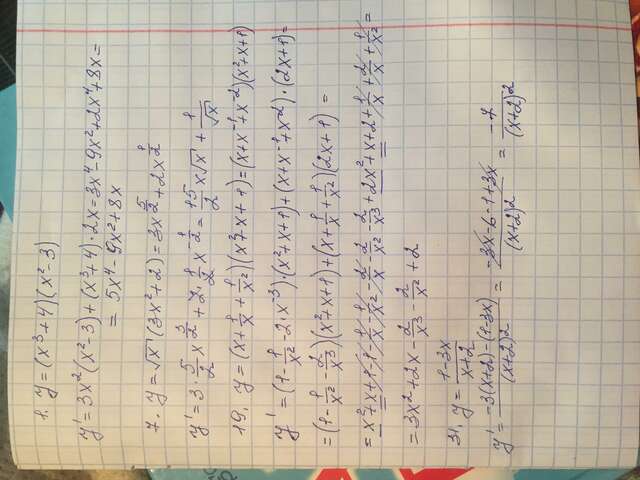 1. y=(x³+4)(x²-3)
y'=3x²(x²-3)+(x³+4)·2x=3x⁴-9x²+2x⁴+8x=
=5x⁴-9x²+8x
7. y=√x(3x²+2)=3x^(5/2)+2x^(1/2)
y'=3·5/2x^(3/2)+2·1/2x^(-1/2)=15/2x√x+1/√x
19. y=(x+1/x+1/x²)(x²+x+1)=(x+x⁻¹+x⁻²)(x²+x+1)
y'=(1-1/x²-2·x⁻³)·(x²+x+1)+(x+x⁻¹+x⁻²)·(2x+1)=
=(1-1/x²-2/x³)(x²+x+1)+(x+1/x+1/x²)(2x+1)=
=x²+x+1-1-1/x-1/x²-2/x-2/x²-2/x³+2x²+x+2+1/x+2/x+1/x²=
=3x²+2x-2/x³-2/x²+2
31. y=(1-3x)/(x+2)
y'=(-3(x+2)-(1-3x))/(x+2)²=(-3x-6-1+3x)/(x+2)²=-7/(x+2)²